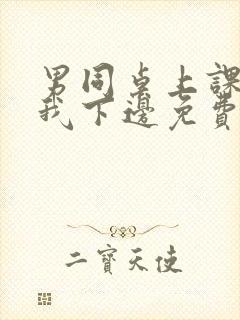 男同桌上課
我下邊免費
二寶天使